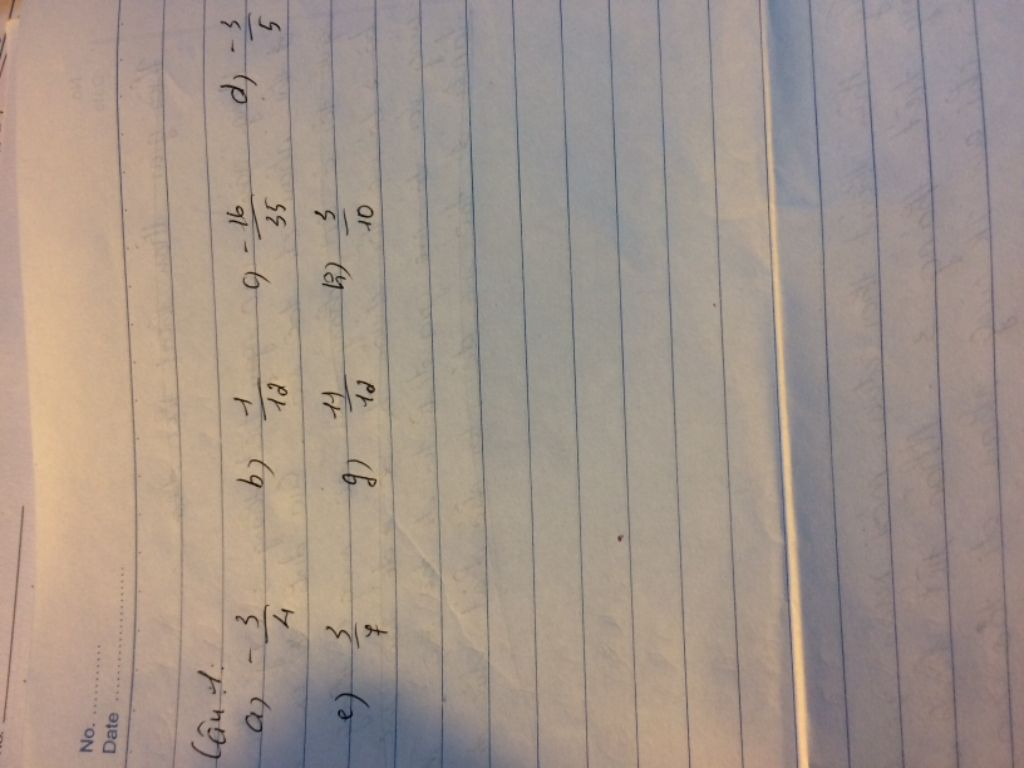 No. ............
Date ......................
Câu 1:
a) -3/4 b) 1/12 c) -16/35 d) -3/5
e) 3/7 g) 11/12 h) 3/10